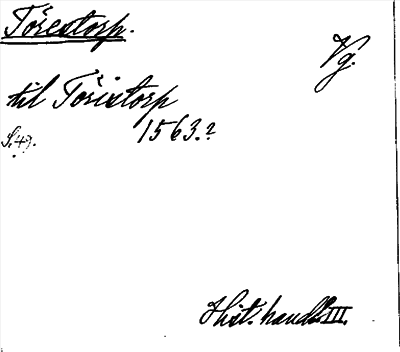 Torestorp.
Vg.
til Toristorp
1563.?
S. 49.
Hist. handl. III.